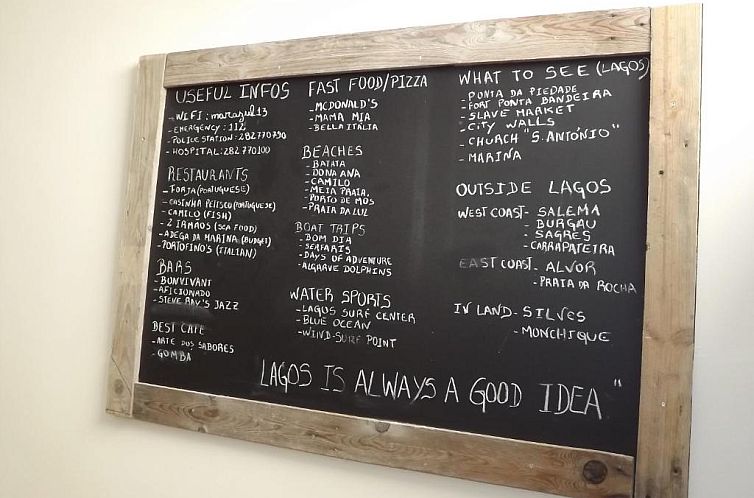 USEFUL INFOS
- WIFI: marazul13
- EMERGENCY: 112
- POLICE STATION: 282 770 790
- HOSPITAL: 282 770100
RESTAURANTS
- FORJA (PORTUGUESE)
- CASINHA PETISCO (PORTUGUESE)
- CAMILO (FISH)
- 2 IRMÃOS (SEA FOOD)
- ADEGA DA MARINA (BUDGET)
- PORTOFINO'S (ITALIAN)
BARS
- BONVIVANT
- AFICIONADO
- STEVIE RAY'S JAZZ
BEST CAFE
- ARTE DOS SABORES
- GOMBA
FAST FOOD/PIZZA
- MCDONALD'S
- MAMA MIA
- BELLA ITALIA
BEACHES
- BATATA
- DONA ANA
- CAMILO
- MEIA PRAIA
- PORTO DE MÓS
- PRAIA DA LUZ
BOAT TRIPS
- BOM DIA
- SEAFARIS
- DAYS OF ADVENTURE
- ALGARVE DOLPHINS
WATER SPORTS
- LAGOS SURF CENTER
- BLUE OCEAN
- WIND-SURF POINT
WHAT TO SEE (LAGOS)
- PONTA DA PIEDADE
- FORT PONTA BANDEIRA
- SLAVE MARKET
- CITY WALLS
- CHURCH "S. ANTÓNIO"
- MARINA
OUTSIDE LAGOS
WEST COAST - SALEMA
- BURGAU
- SAGRES
- CARRAPATEIRA
EAST COAST - ALVOR
- PRAIA DA ROCHA
IN LAND - SILVES
- MONCHIQUE
LAGOS IS ALWAYS A GOOD IDEA"